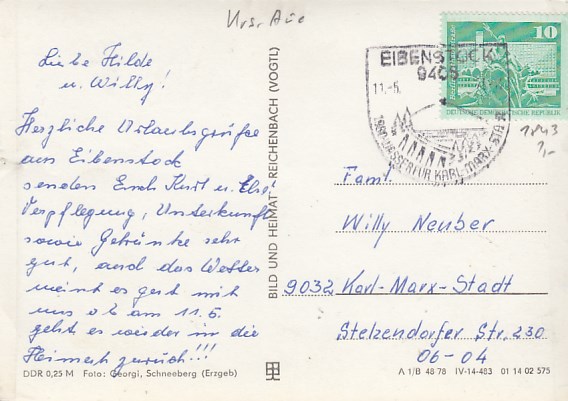 Krs. Aue
Liebe Hilde
u. Willy!
Herzliche Urlaubsgrüße
aus Eibenstock
senden Euch Kurt u. Else
Verpflegung, Unterkunft
sowie Getränke sehr
gut, auch das Wetter
meint es gut mit
uns am 11.6.
geht es wieder in die
Heimat zurück!!!
DDR 0,25 M Foto: Georgi, Schneeberg (Erzgeb)
BILD UND HEIMAT REICHENBACH (VOGTL)
10
DEUTSCHE DEMOKRATISCHE REPUBLIK
EIBENSTOCK
9405
11.-6.
WASSER FÜR KARL-MARX-STADT
1843
Faml.
Willy Neuber
9032 Karl-Marx-Stadt
Stelzendorfer Str. 230
06-04
A 1/B 48 78 IV-14-483 01 14 02 575